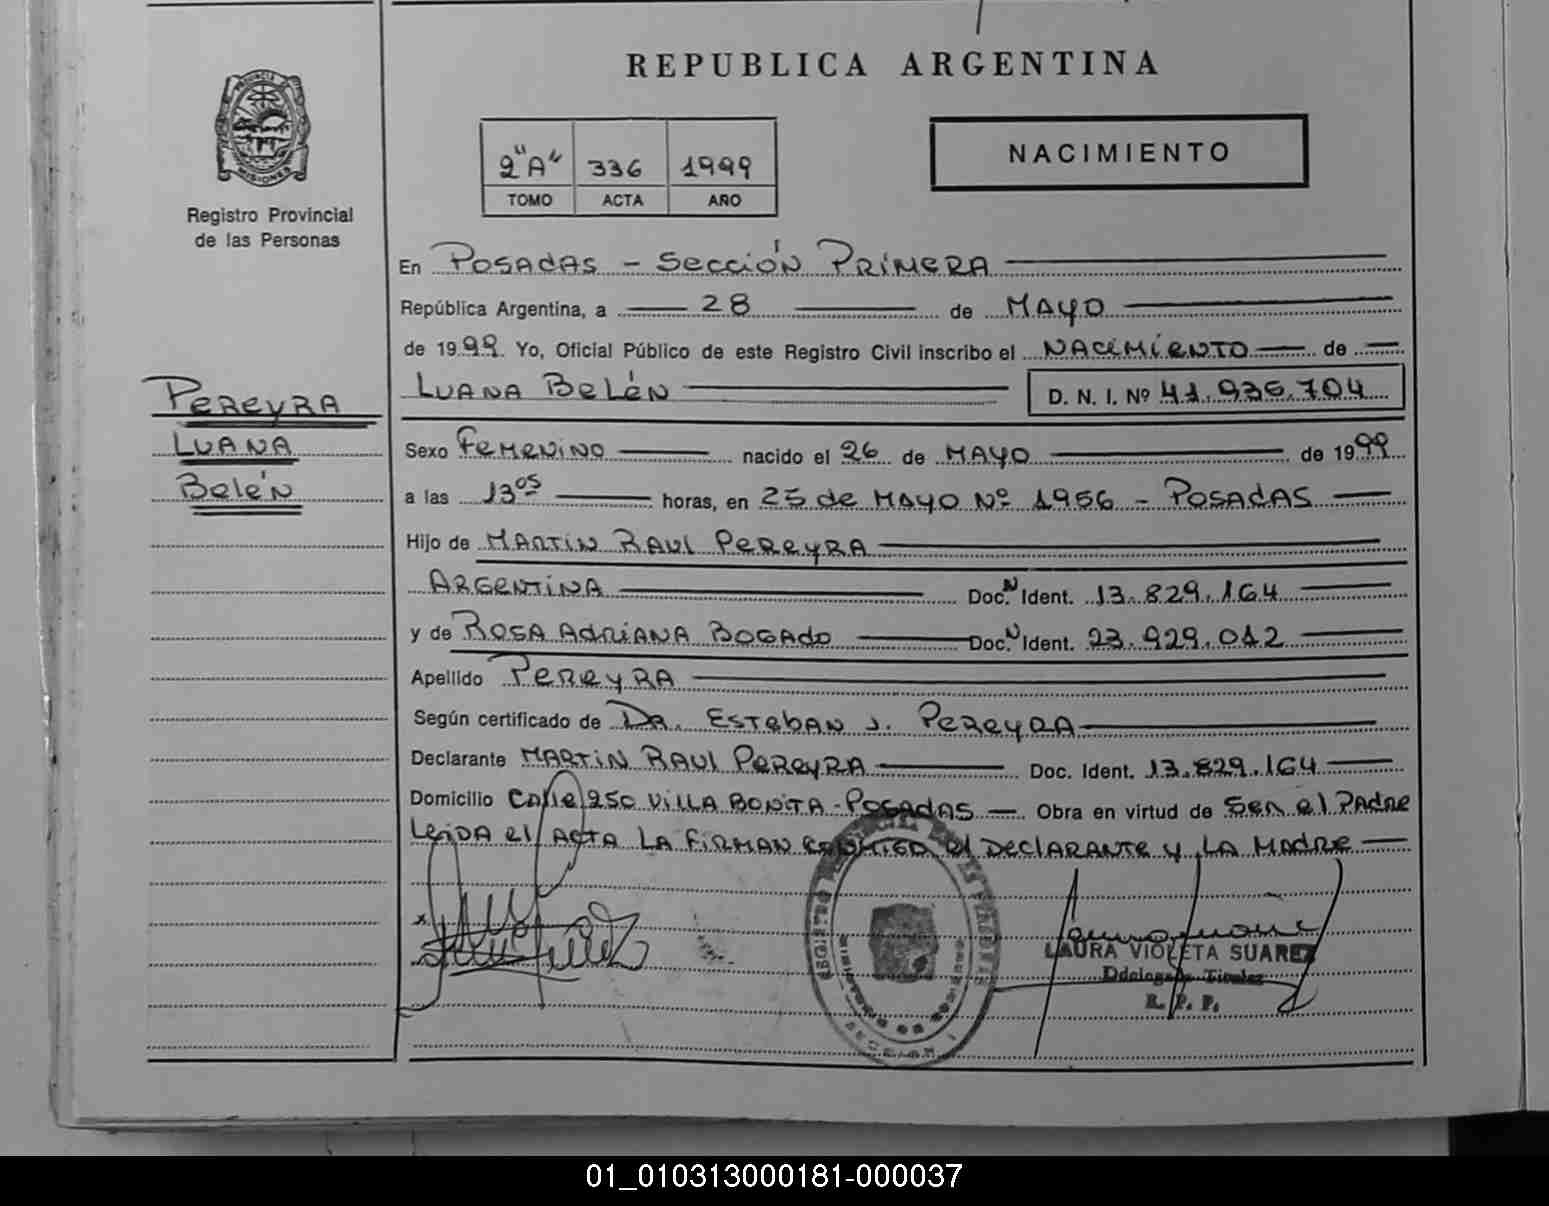 REPUBLICA ARGENTINA
PROVINCIA DE
MISIONES
2"A" 336 1999
TOMO ACTA AÑO
NACIMIENTO
Registro Provincial
de las Personas
En Posadas - Sección Primera
República Argentina, a 28 de Mayo
de 1999. Yo, Oficial Público de este Registro Civil inscribo el Nacimiento de
Luana Belén D. N. I. Nº 41.936.704
Pereyra
Luana
Belén
Sexo Femenino nacido el 26 de Mayo de 1999
a las 13 05 horas, en 25 de Mayo Nº 1956 - Posadas
Hijo de Martin Raul Pereyra
Argentina Doc. N Ident. 13.829.164
y de Rosa Adriana Bogado Doc. N Ident. 23.929.042
Apellido Pereyra
Según certificado de Dr. Esteban J. Pereyra
Declarante Martin Raul Pereyra Doc. Ident. 13.829.164
Domicilio Calle 250 Villa Bonita - Posadas Obra en virtud de Ser el Padre
Leida el Acta La Firman conmigo el Declarante y La Madre
LAURA VIOLETA SUAREZ
Titular
R. P. P.
01_010313000181-000037